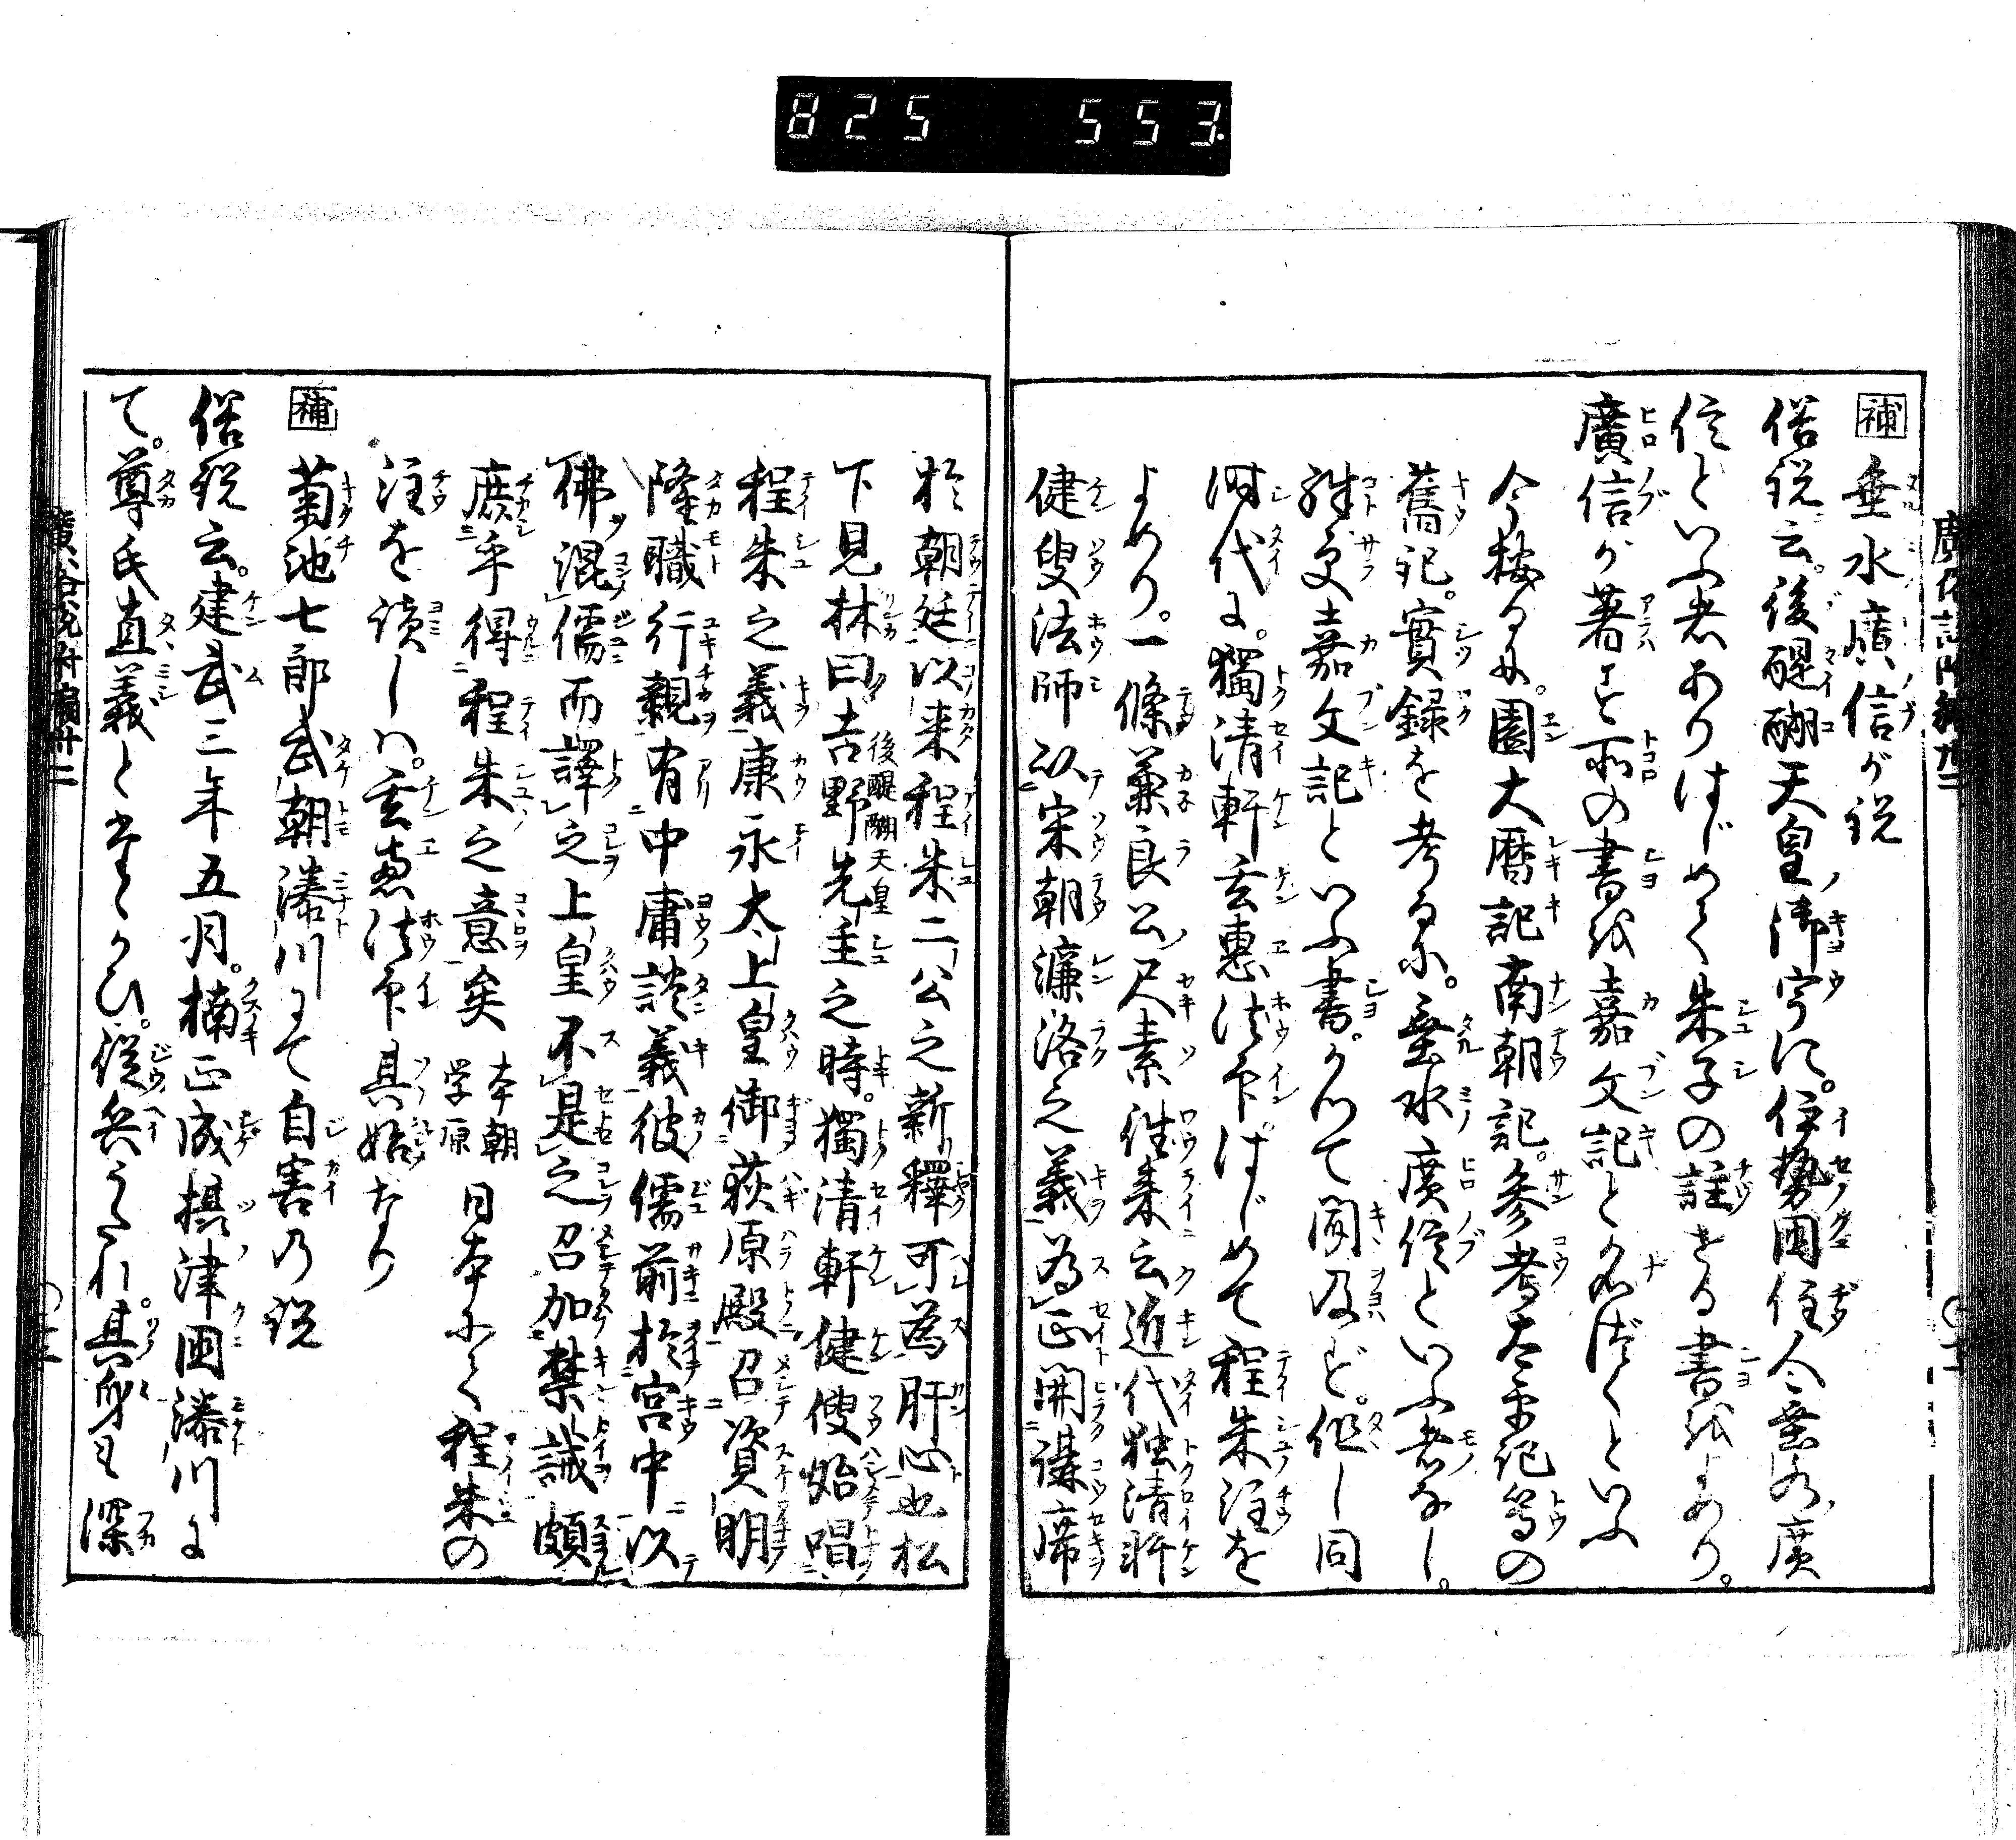 825 553
補 垂水廣信が説
俗説云。後醍醐天皇ノ御宇に。伊勢国住人垂水廣
信といふ者ありはじめて朱子の註せる書をよめり。
廣信が著す所の書を嘉文記と名づくといふ
今按るに。園大暦記南朝記。参考太平記等の
舊記。實録を考るに。垂水廣信といふ者なし。
殊更嘉文記といふ書。かつて聞及ばず。但し同
時代に。獨清軒玄惠法印。はじめて程朱注を
よめり。一條兼良公ノ尺素往来云近代独清軒
健叟法師以宋朝濂洛之義為正開講席
於朝廷以来程朱二公之新釋可為肝心也松
下見林曰吉野先主之時。獨清軒健叟始唱
後醍醐天皇
程朱之義康永太上皇御荻原殿召資明
隆職行親有中庸談義彼儒前於宮中以
佛混儒而譯之上皇不是之召加禁誡頗
庶乎得程朱之意矣 本朝学原 日本にて程朱の
注を讀しハ。玄惠法印其始なり
補 菊池七郎武朝湊川にて自害の説
俗説云。建武三年五月。楠正成摂津国湊川に
て。尊氏直義とたゝかひ。從兵うたれ。其身も深